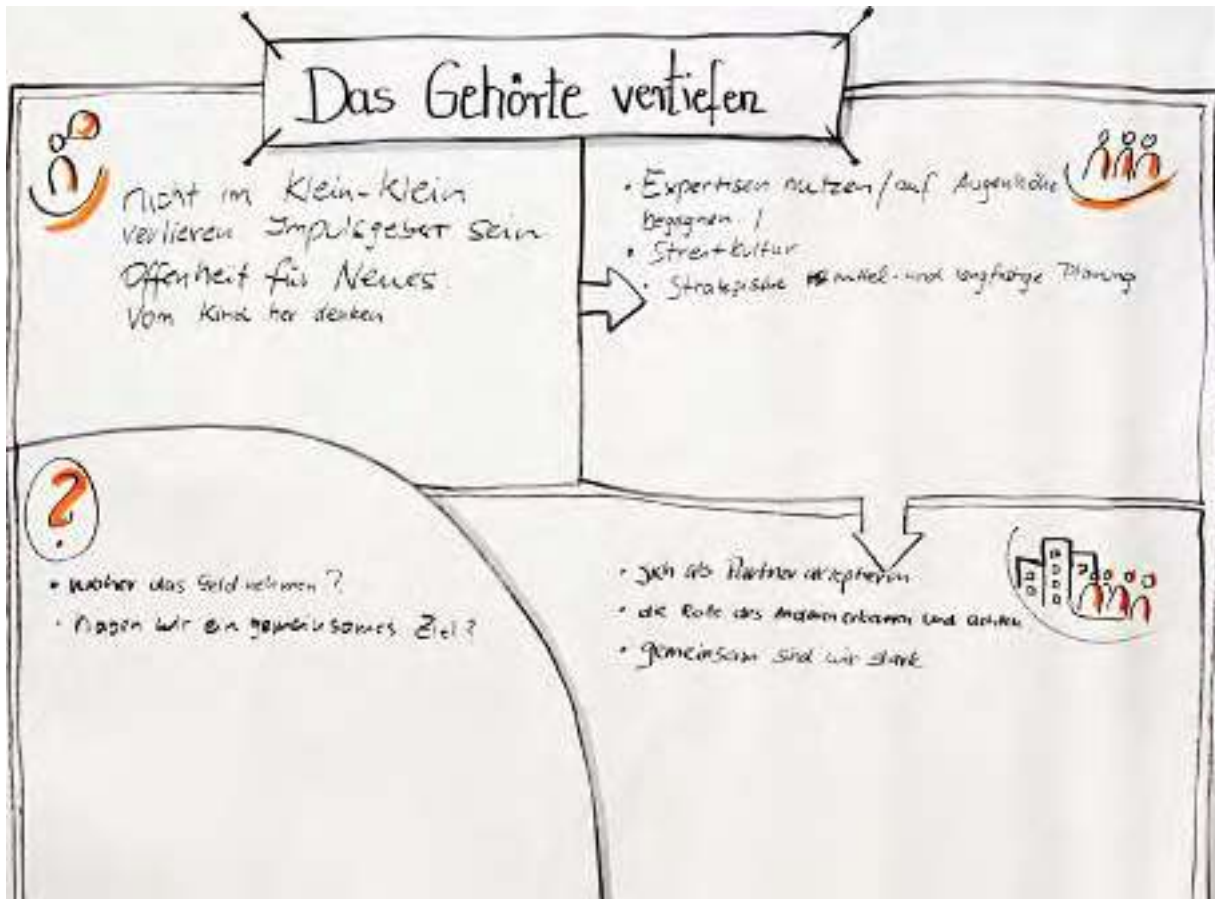 Das Gehörte vertiefen
nicht im Klein-Klein
verlieren Impulsgeber sein
Offenheit für Neues.
Vom Kind her denken
• Expertisen nutzen/auf Augenhöhe
begegnen /
• Streitkultur
• Strategische mittel- und langfristige Planung
?
• woher das Geld nehmen?
• Haben wir ein gemeinsames Ziel?
• sich als Partner akzeptieren
• die Rolle des Anderen erkennen und achten
• gemeinsam sind wir stark